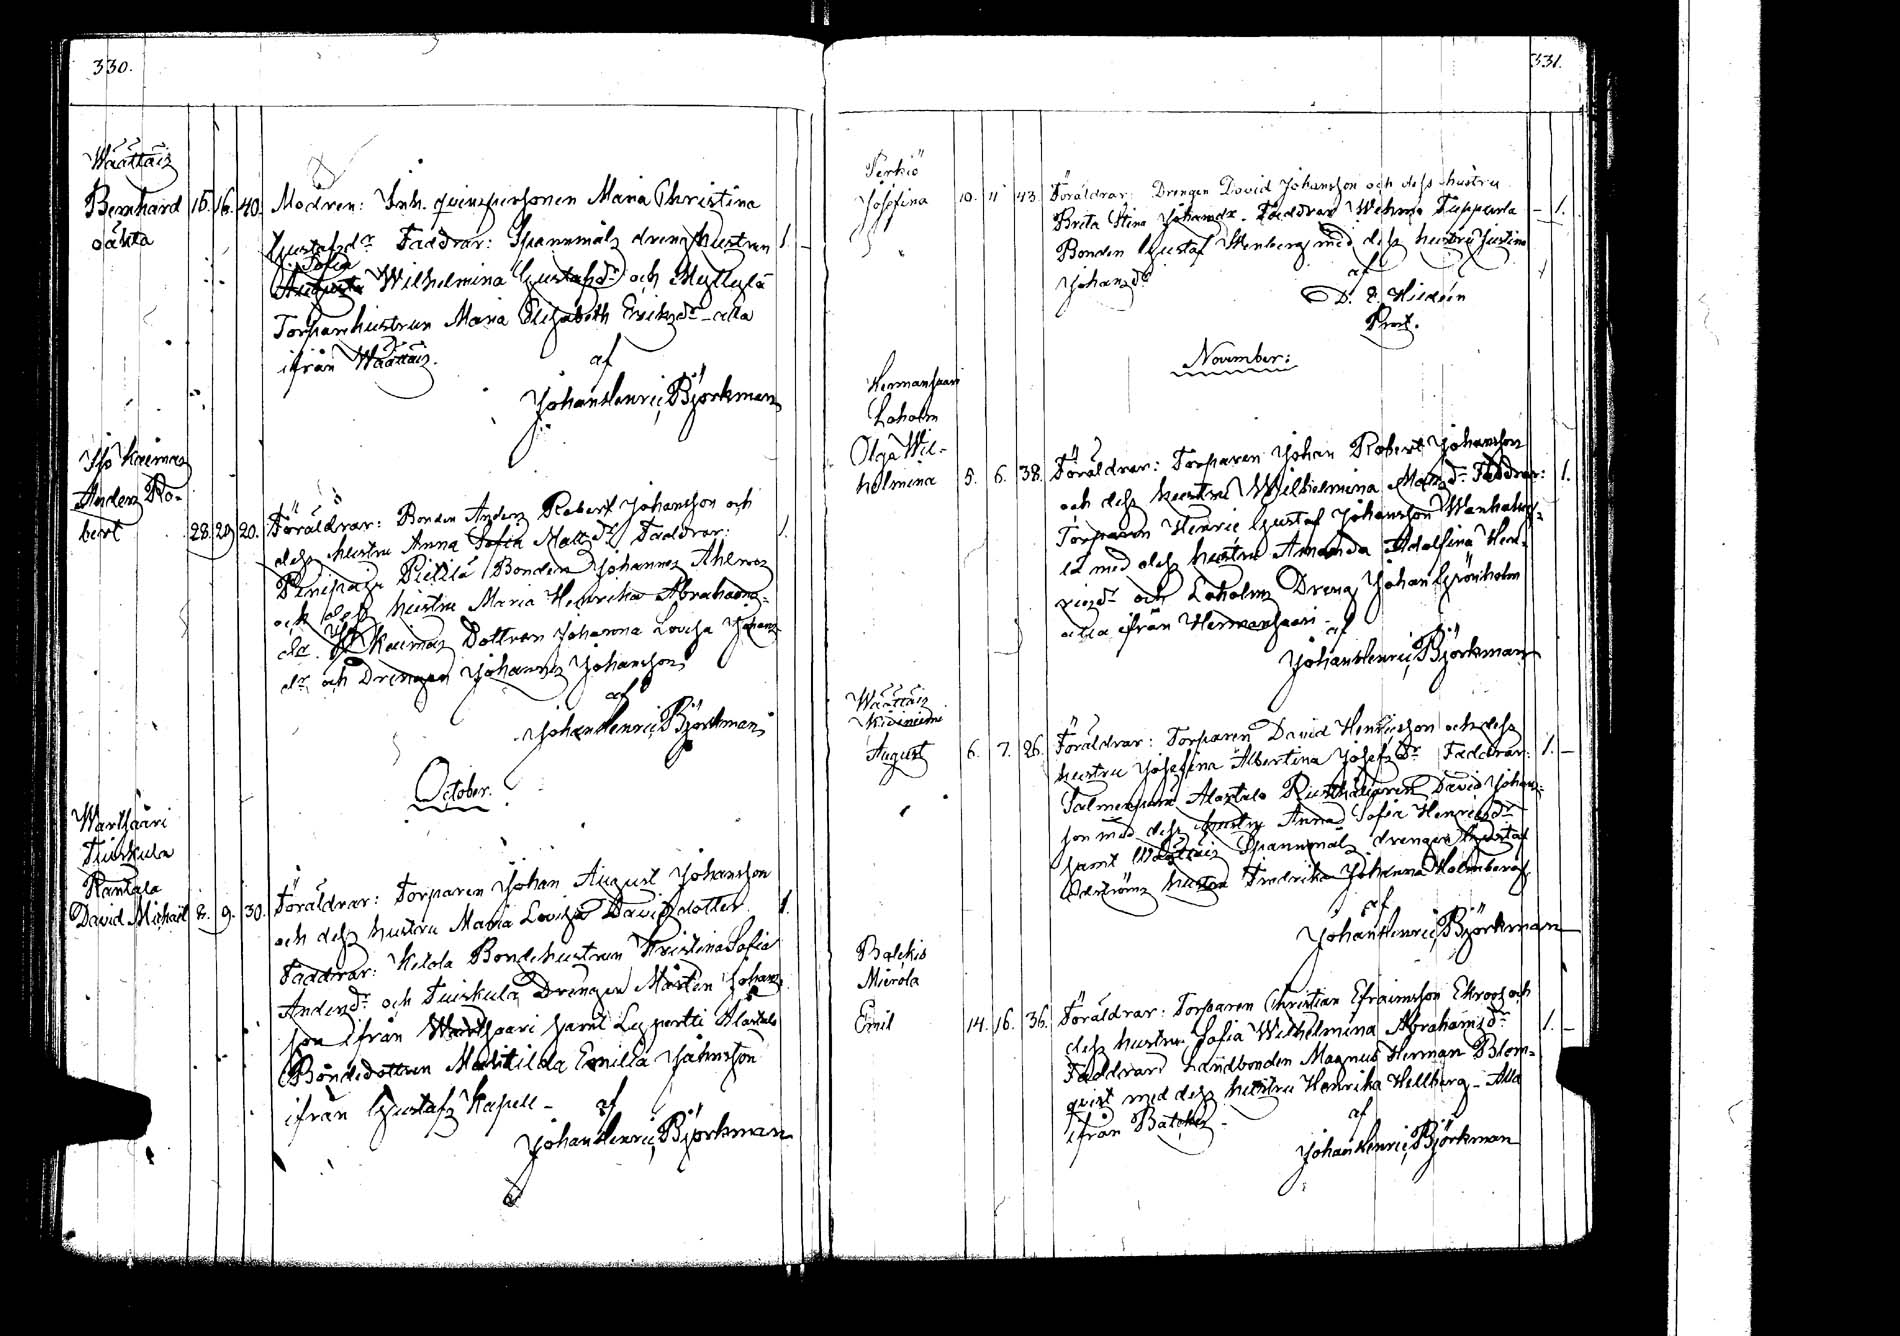 330.
Wäättäis
Bernhard 15. 16. 40. Modren: Inh. qvinspersonen Maria Christina
oäkta
Gustafsdr Faddrar: Spannmåls dreng hustrun 1.
Sofia
Augusta Wilhelmina Gustafsdr och Myllylä
Torparehustrun Maria Elisabeth Eriksdr - alla
ifrån Wäättäis.
af
Johan Henric Björkman
Iso Kaimas
Anders Ro-
bert 28. 29. 20. Föräldrar: Bonden Anders Robert Johansson och 1.
dess hustru Anna Sofia Mattsdr Faddrar:
Pietilä Bonden Johannes Ahlroos
och dess hustru Maria Henrika Abrahams-
dr. Iso Kaimas Dottren Johanna Lovisa Johans-
dr och Drengen Johannes Johansson
af
Johan Henric Björkman
October.
Wartsaari
Tuiskula
Rantala
David Michaël 8. 9. 30. Föräldrar: Torparen Johan August Johansson 1.
och dess hustru Maria Lovisa Davidsdotter
Faddrar: Ketola Bondehustrun Kristina Sofia
Andersdr och Tuiskula Drengen Mårten Johans-
son ifrån Wartsaari samt Leppertti Alastalo
Bondedottren Mathilda Emilia Johnsson
ifrån Gustafs Kapell -
af
Johan Henric Björkman
331.
Perkiö
Josefina 10. 11 43. Föräldrar: Drengen David Johansson och dess hustru - 1.
Brita Stina Johansdr. Faddrar Wehma Tuppurla
Bonden Gustaf Stenberg med dess hustru Justina
Johansdr
af
D. E. Hideen
Prost.
November:
Hermansaari
Laholm
Olga Wil-
helmina 5. 6. 38. Föräldrar: Torparen Johan Robert Johansson 1.
och dess hustru Wilhelmina Mattsdr Faddrar:
Torparen Henric Gustaf Johansson Wanhakyl-
lä med dess hustru Amanda Adolfina Hen-
ricsdr och Laholms Dreng Johan Grönholm
alla ifrån Hermansaari -
af
Johan Henric Björkman
Wäättäis
Kivinicmi
August 6. 7. 26. Föräldrar: Torparen David Henricsson och dess 1. -
hustru Josefina Albertina Josefsdr Faddrar:
Salmenpää Alastalo Rusthållaren David Johans-
son med dess hustru Anna Sofia Henricsdr
samt Wäättäis Spannmåls drengen Gustaf
Edströms hustru Fredrika Johanna Holmberg
af
Johan Henric Björkman
Balckis
Mierola
Emil 14. 16. 36. Föräldrar: Torparen Christian Efraimsson Ekroos och 1. -
dess hustru Sofia Wilhelmina Abrahamsdr
Faddrar: Landbonden Magnus Herman Blom-
qvist med dess hustru Henrika Hellberg - Alla
ifrån Balckis -
af
Johan Henric Björkman